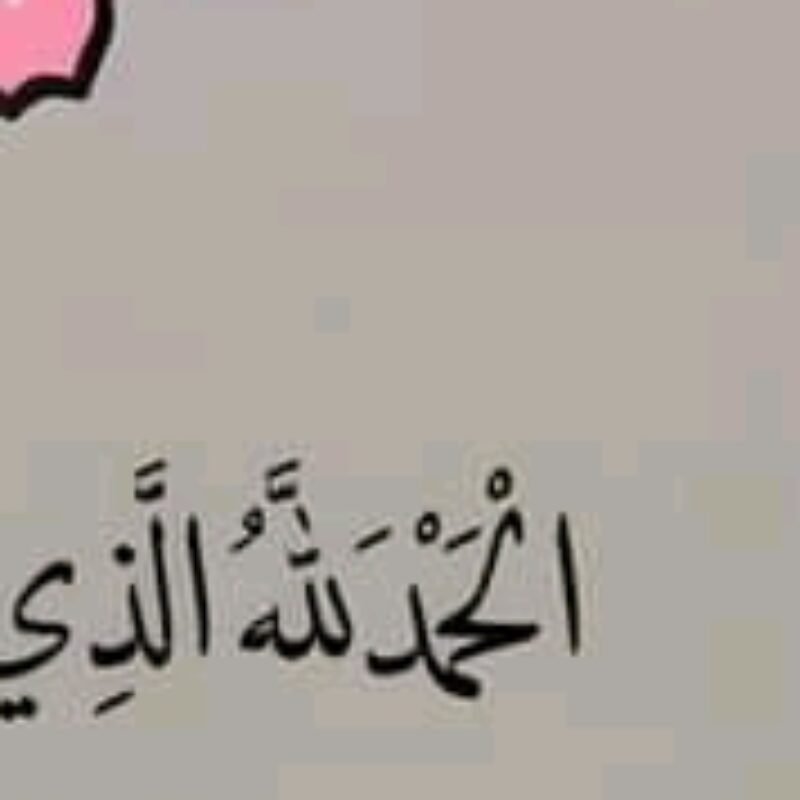 الْحَمْدَ للَّهُ الَّذِي